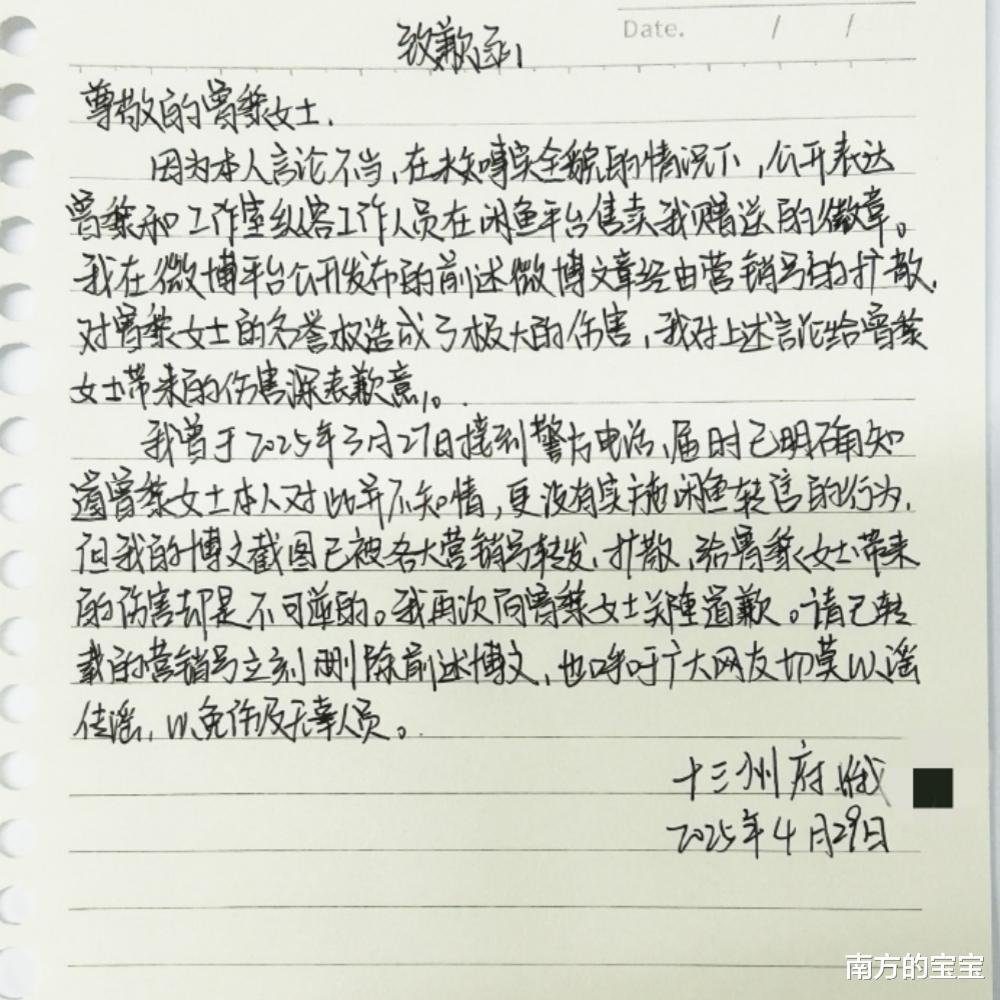 Date. / /
致歉函
尊敬的曾黎女士.
因为本人言论不当,在未知事实全貌的情况下,公开表达
曾黎和工作室纵容工作人员在闲鱼平台售卖我赠送的徽章。
我在微博平台公开发布的前述微博文章经由营销号的扩散,
对曾黎女士的名誉权造成了极大的伤害,我对上述言论给曾黎
女士带来的伤害深表歉意。
我曾于2025年3月27日接到警方电话,届时已明确知
道曾黎女士本人对此并不知情,更没有实施闲鱼转售的行为,
但我的博文截图已被各大营销号转发、扩散,给曾黎女士带来
的伤害却是不可逆的。我再次向曾黎女士郑重道歉。请已转
载的营销号立刻删除前述博文,也呼吁广大网友切莫以谣
传谣,以免伤及无辜人员。
十三州府
2025年4月29日
南方的宝宝